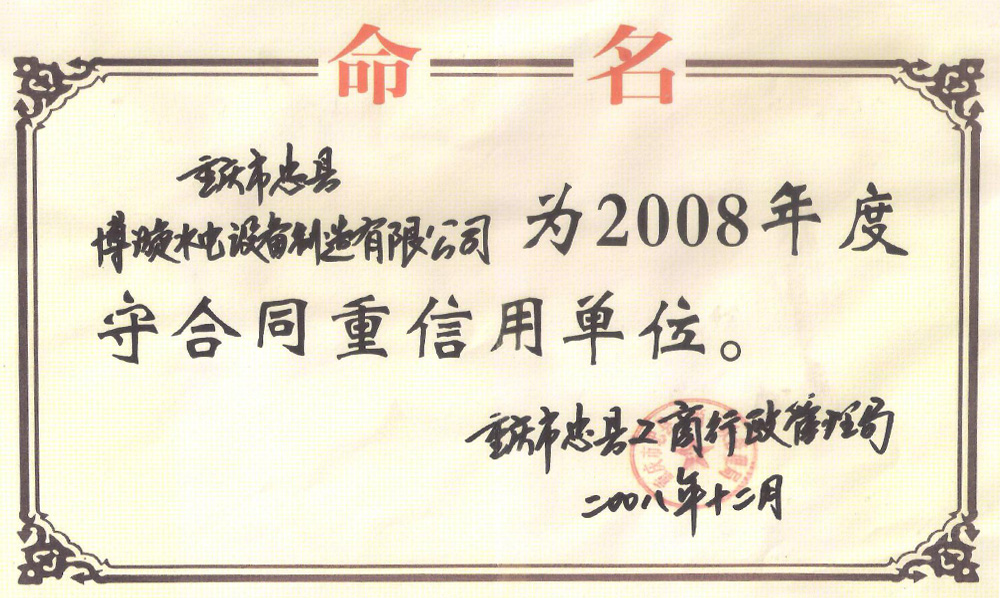 命名
重庆市忠县
博旋水电设备制造有限公司 为2008年度
守合同重信用单位。
重庆市忠县工商行政管理局
二00八年十二月